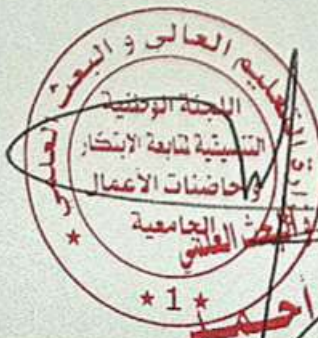 وزارة التعليم العالي و البحث العلمي
اللجنة الوطنية
التنسيقية لمتابعة الابتكار
وحاضنات الأعمال
الجامعية
البحث العلمي
★ 1 ★
أحمد